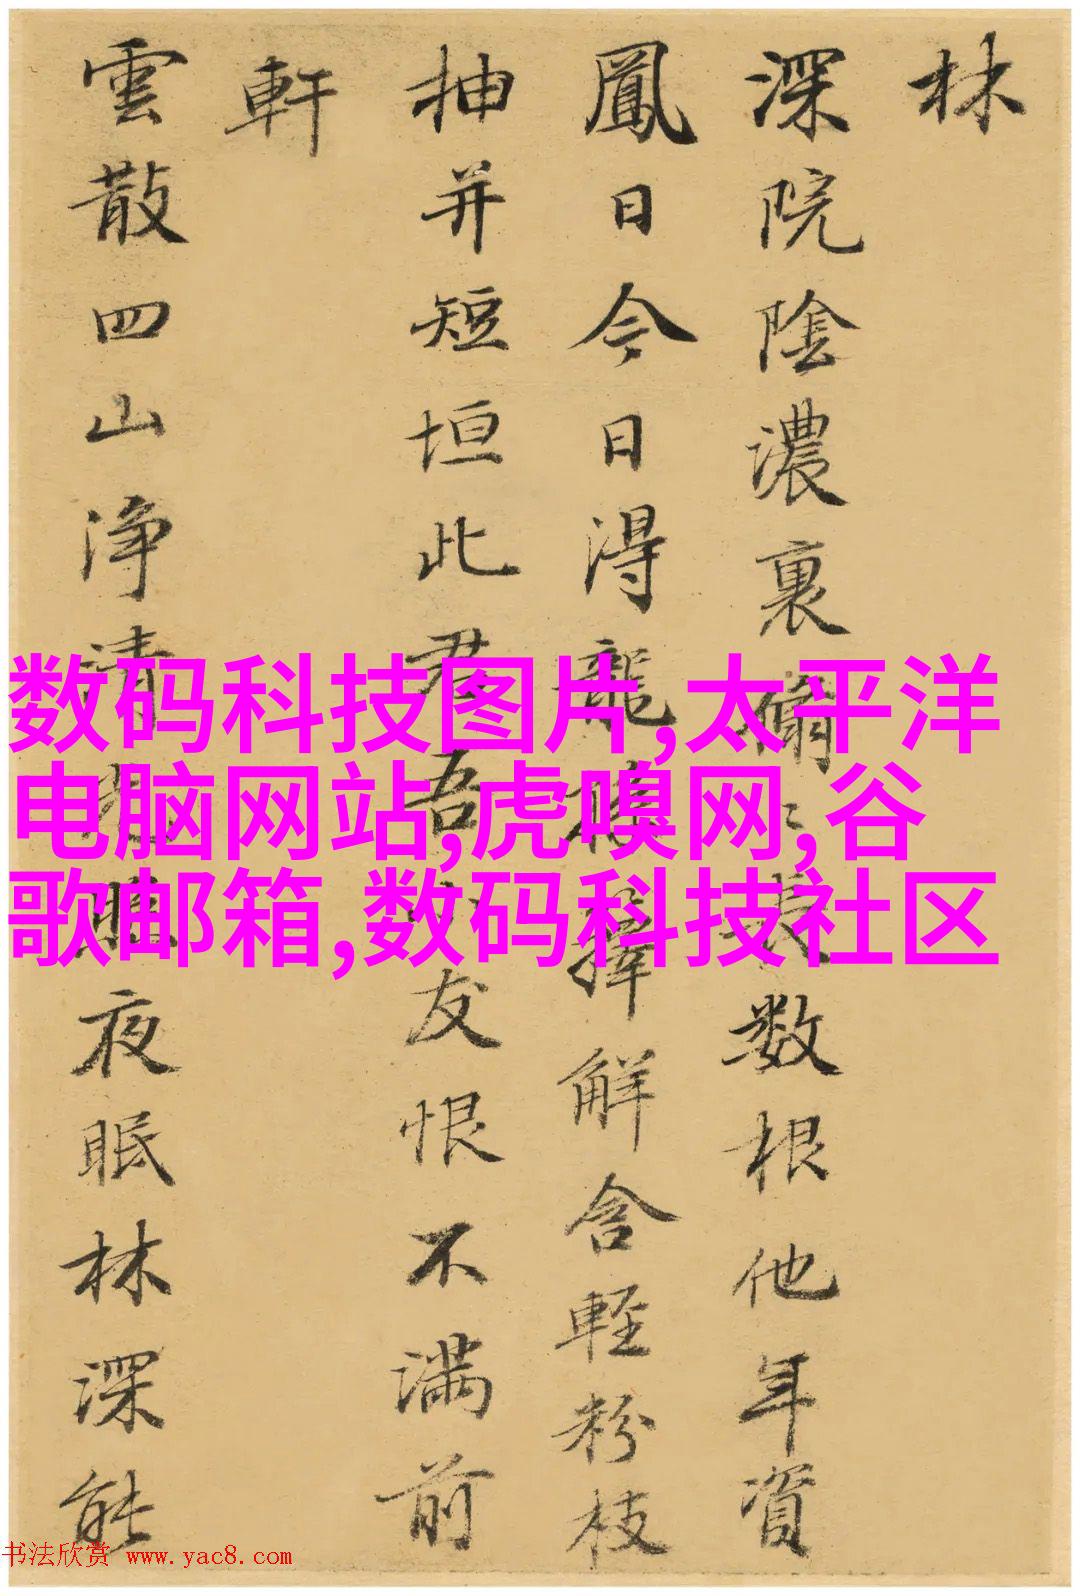 林
深院陰濃裏脩〻長数根他年資
鳳日今日得龍模擇解含輕粉枝
抽并短垣此君吾小友恨不满前
軒
雲散四山净清光照夜眠林深能
数码科技图片,太平洋
电脑网站,虎嗅网,谷
歌邮箱,数码科技社区
书法欣赏 www.yac8.com